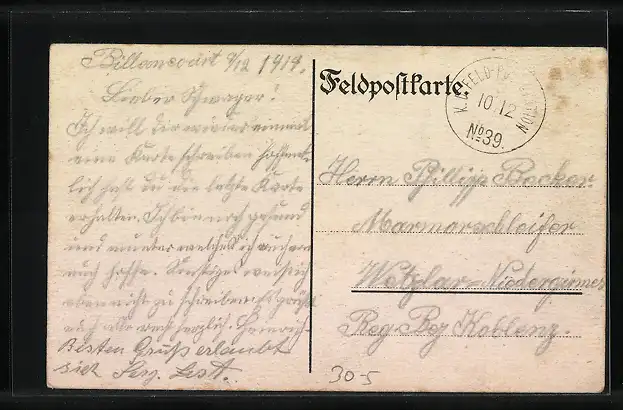 Billancourt 9/12 1914.
Lieber Schwager!
Ich will dir wieder einmal
eine Karte schreiben hoffent-
lich hast du die letzte Karte
erhalten. Ich bin noch gesund
und munter welches ich auch von
euch hoffe. Sonstiges weiß ich
eben nicht zu schreiben es grüßt
euch alle recht herzlich. Heinrich
Besten Gruß erlaubt
sich Serg. Lest.
Feldpostkarte.
K.D. FELD-P STATION
10.12
No 39.
Herrn Phillipp Becker
Marmorschleifer
Wetzlar-Niedergirmes
Reg. Bez Koblenz.
30-5